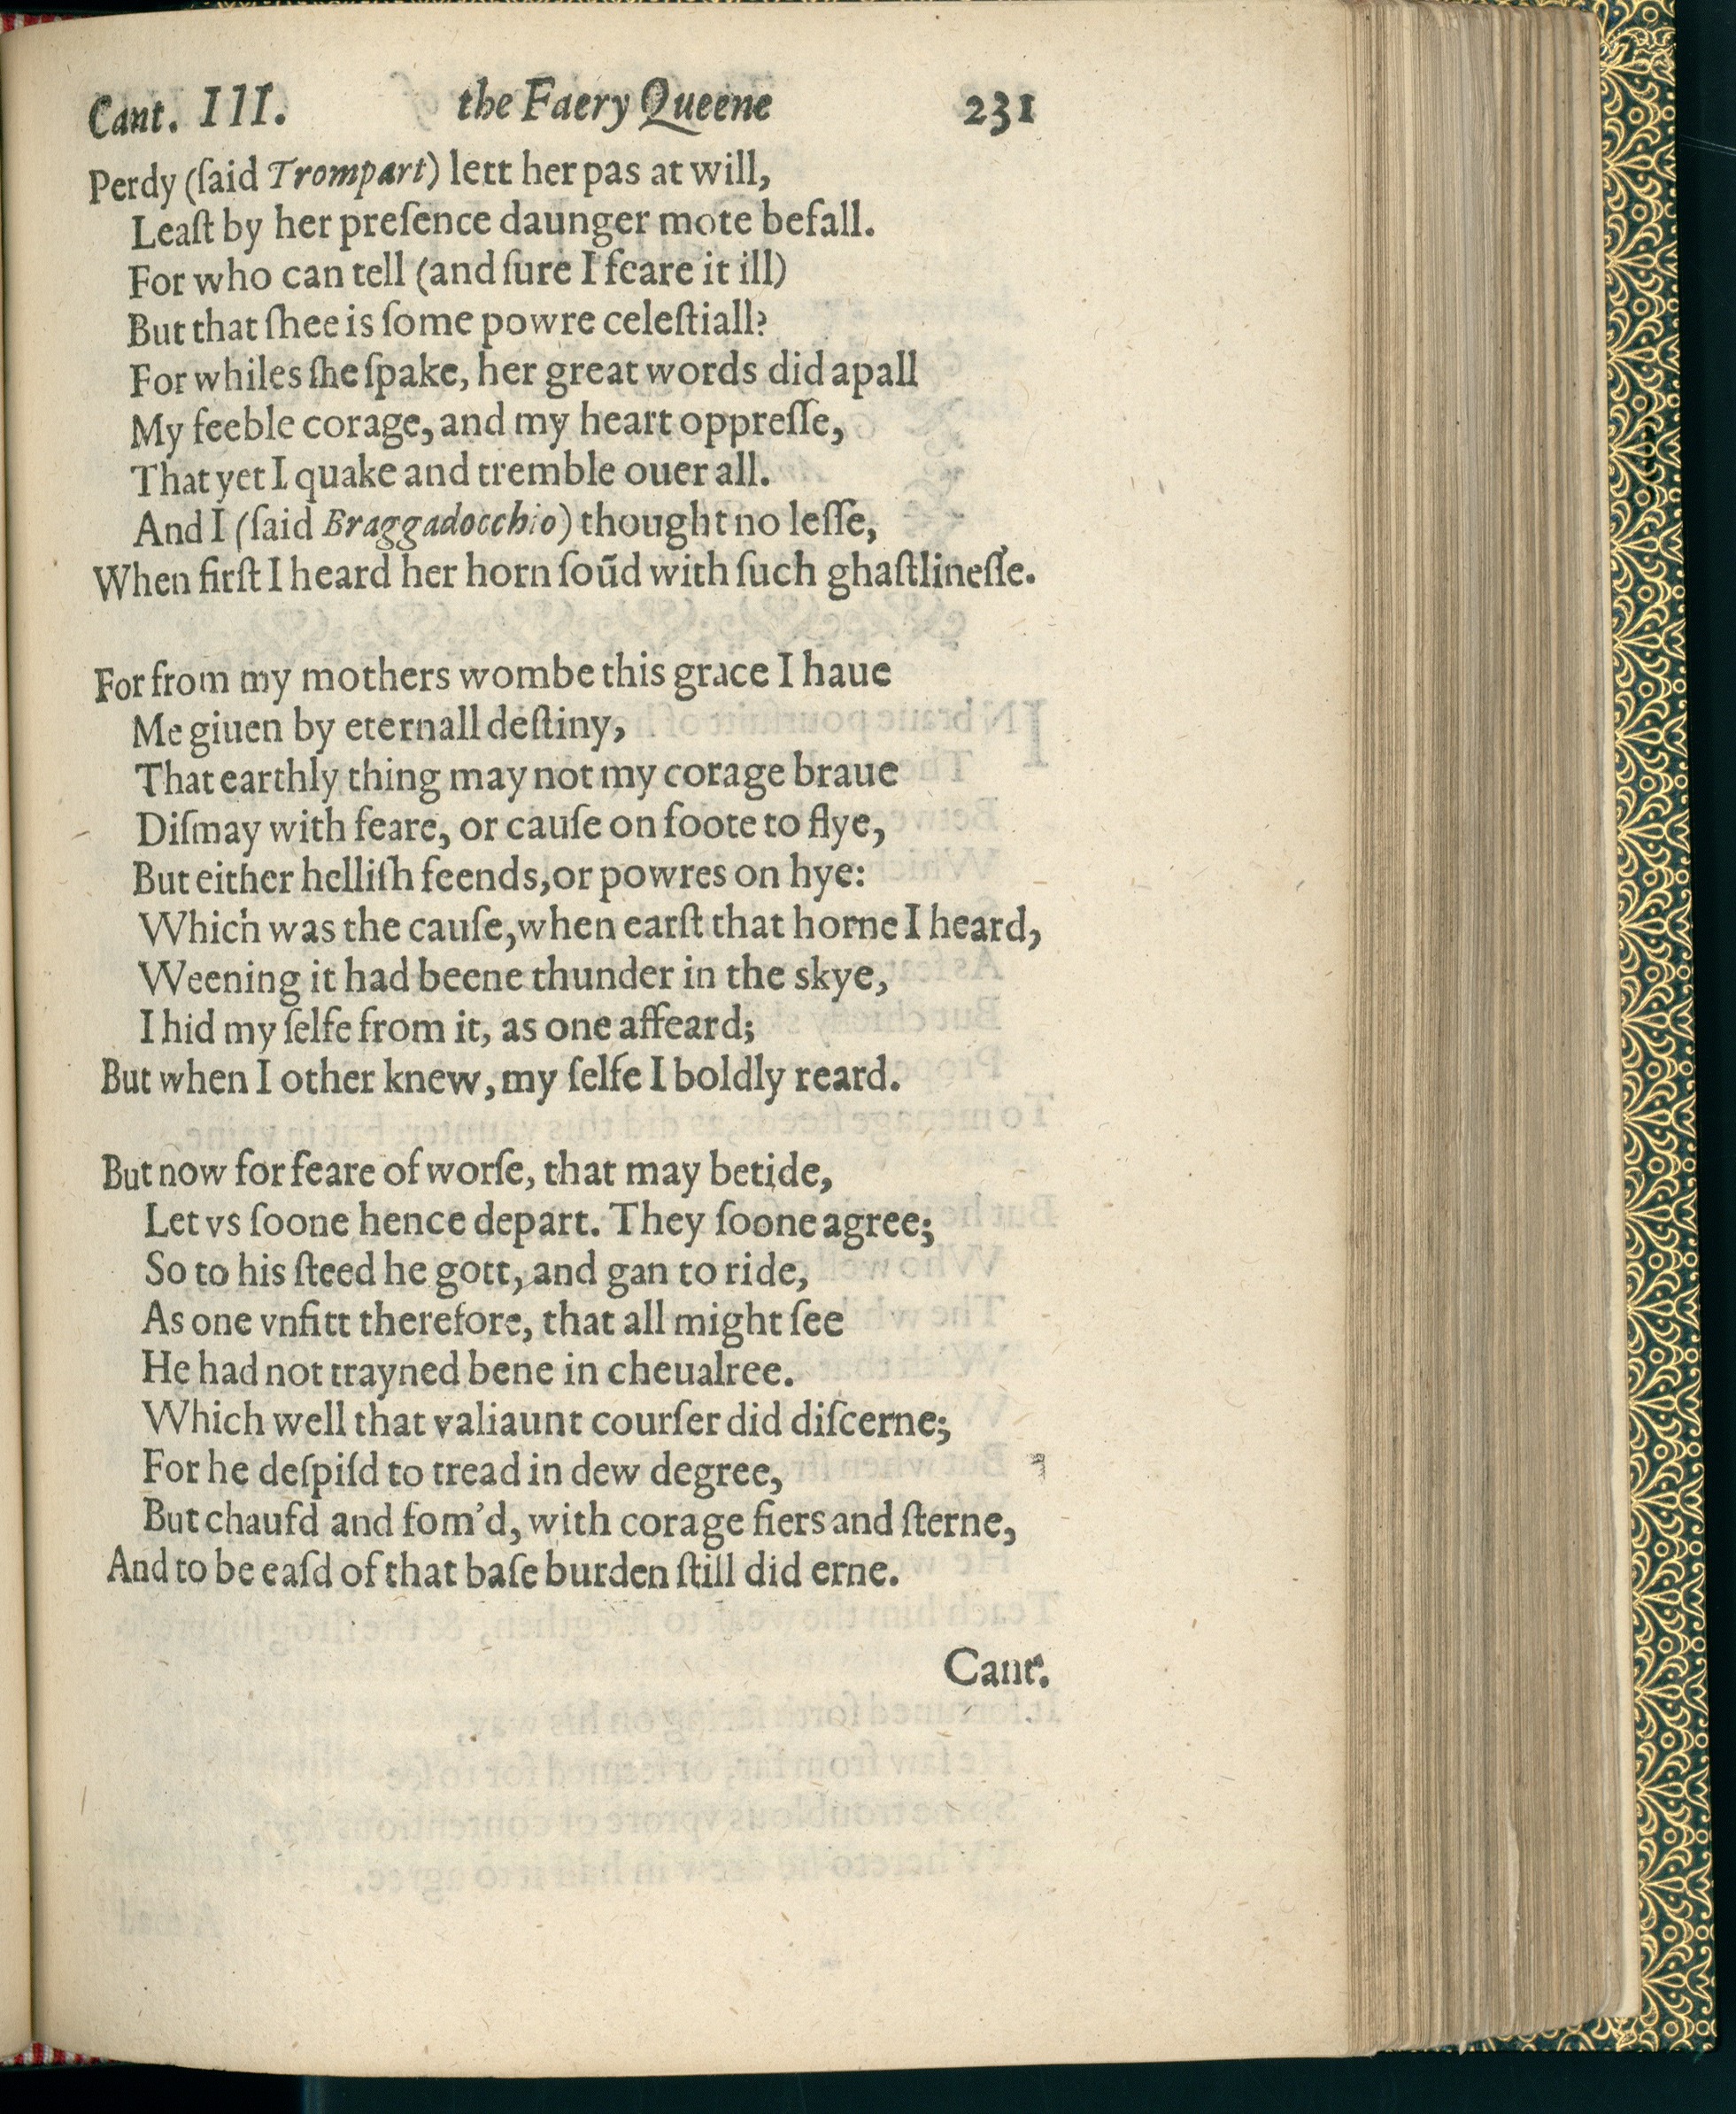 Cant. III. the Faery Queene 231
Perdy (ſaid Trompart) lett her pas at will,
Leaſt by her preſence daunger mote befall.
For who can tell (and ſure I feare it ill)
But that ſhee is ſome powre celeſtiall?
For whiles ſhe ſpake, her great words did apall
My feeble corage, and my heart oppreſſe,
That yet I quake and tremble ouer all.
And I (ſaid Braggadocchio) thought no leſſe,
When firſt I heard her horn ſoũd with ſuch ghaſtlineſſe.
For from my mothers wombe this grace I haue
Me giuen by eternall deſtiny,
That earthly thing may not my corage braue
Diſmay with feare, or cauſe on foote to flye,
But either helliſh feends, or powres on hye:
Which was the cauſe, when earſt that horne I heard,
Weening it had beene thunder in the skye,
I hid my ſelfe from it, as one affeard;
But when I other knew, my ſelfe I boldly reard.
But now for feare of worſe, that may betide,
Let vs ſoone hence depart. They ſoone agree;
So to his ſteed he gott, and gan to ride,
As one vnfitt therefore, that all might ſee
He had not trayned bene in cheualree.
Which well that valiaunt courſer did diſcerne;
For he deſpiſd to tread in dew degree,
But chaufd and fom'd, with corage fiers and ſterne,
And to be eaſd of that baſe burden ſtill did erne.
Cant.